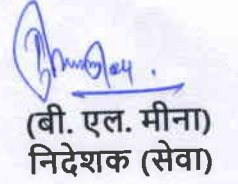 (बी. एल. मीना)
निदेशक (सेवा)